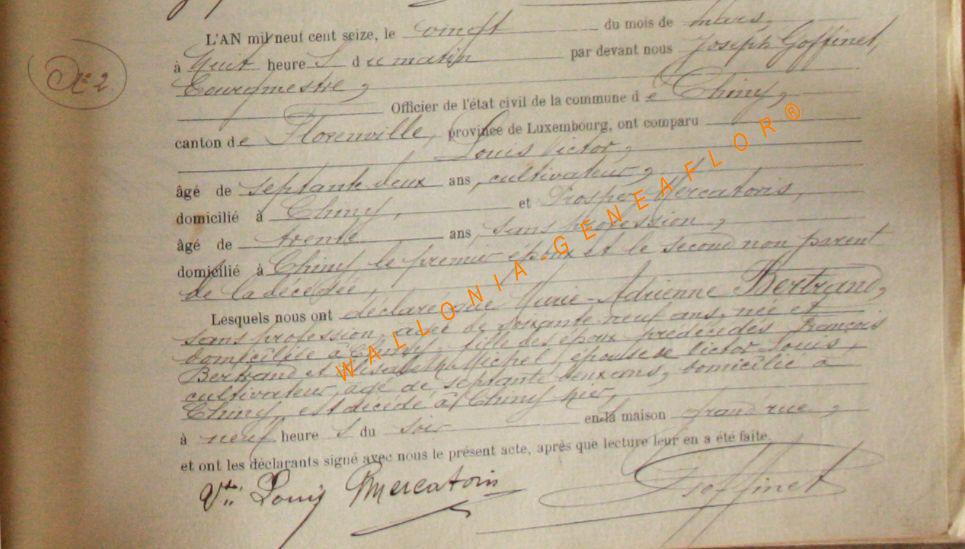 N° 2.
L'AN mil neuf cent seize, le vingt du mois de mars,
à huit heure s du matin par devant nous Joseph Goffinet,
Bourgmestre,
Officier de l'état civil de la commune d e Chiny,
canton de Florenville, province de Luxembourg, ont comparu
Louis Victor,
âgé de septante deux ans, cultivateur,
domicilié à Chiny, et Prosper Mercatoris,
âgé de trente ans, sans profession,
domicilié à Chiny le premier époux et le second non parent
de la décédée,
Lesquels nous ont déclaré que Marie-Adrienne Bertrand,
sans profession, âgée de soixante neuf ans, née et
domiciliée à Chiny, fille des époux prédécédés François
Bertrand et Elisabeth Michel, épouse de Victor Louis,
cultivateur, âgé de septante deux ans, domicilié à
Chiny, est décédé à Chiny hier,
à neuf heure s du soir en la maison grand rue,
et ont les déclarants signé avec nous le présent acte, après que lecture leur en a été faite.
Vtor Louis PMercatoris JGoffinet
WALLONIA GENEAFLOR®